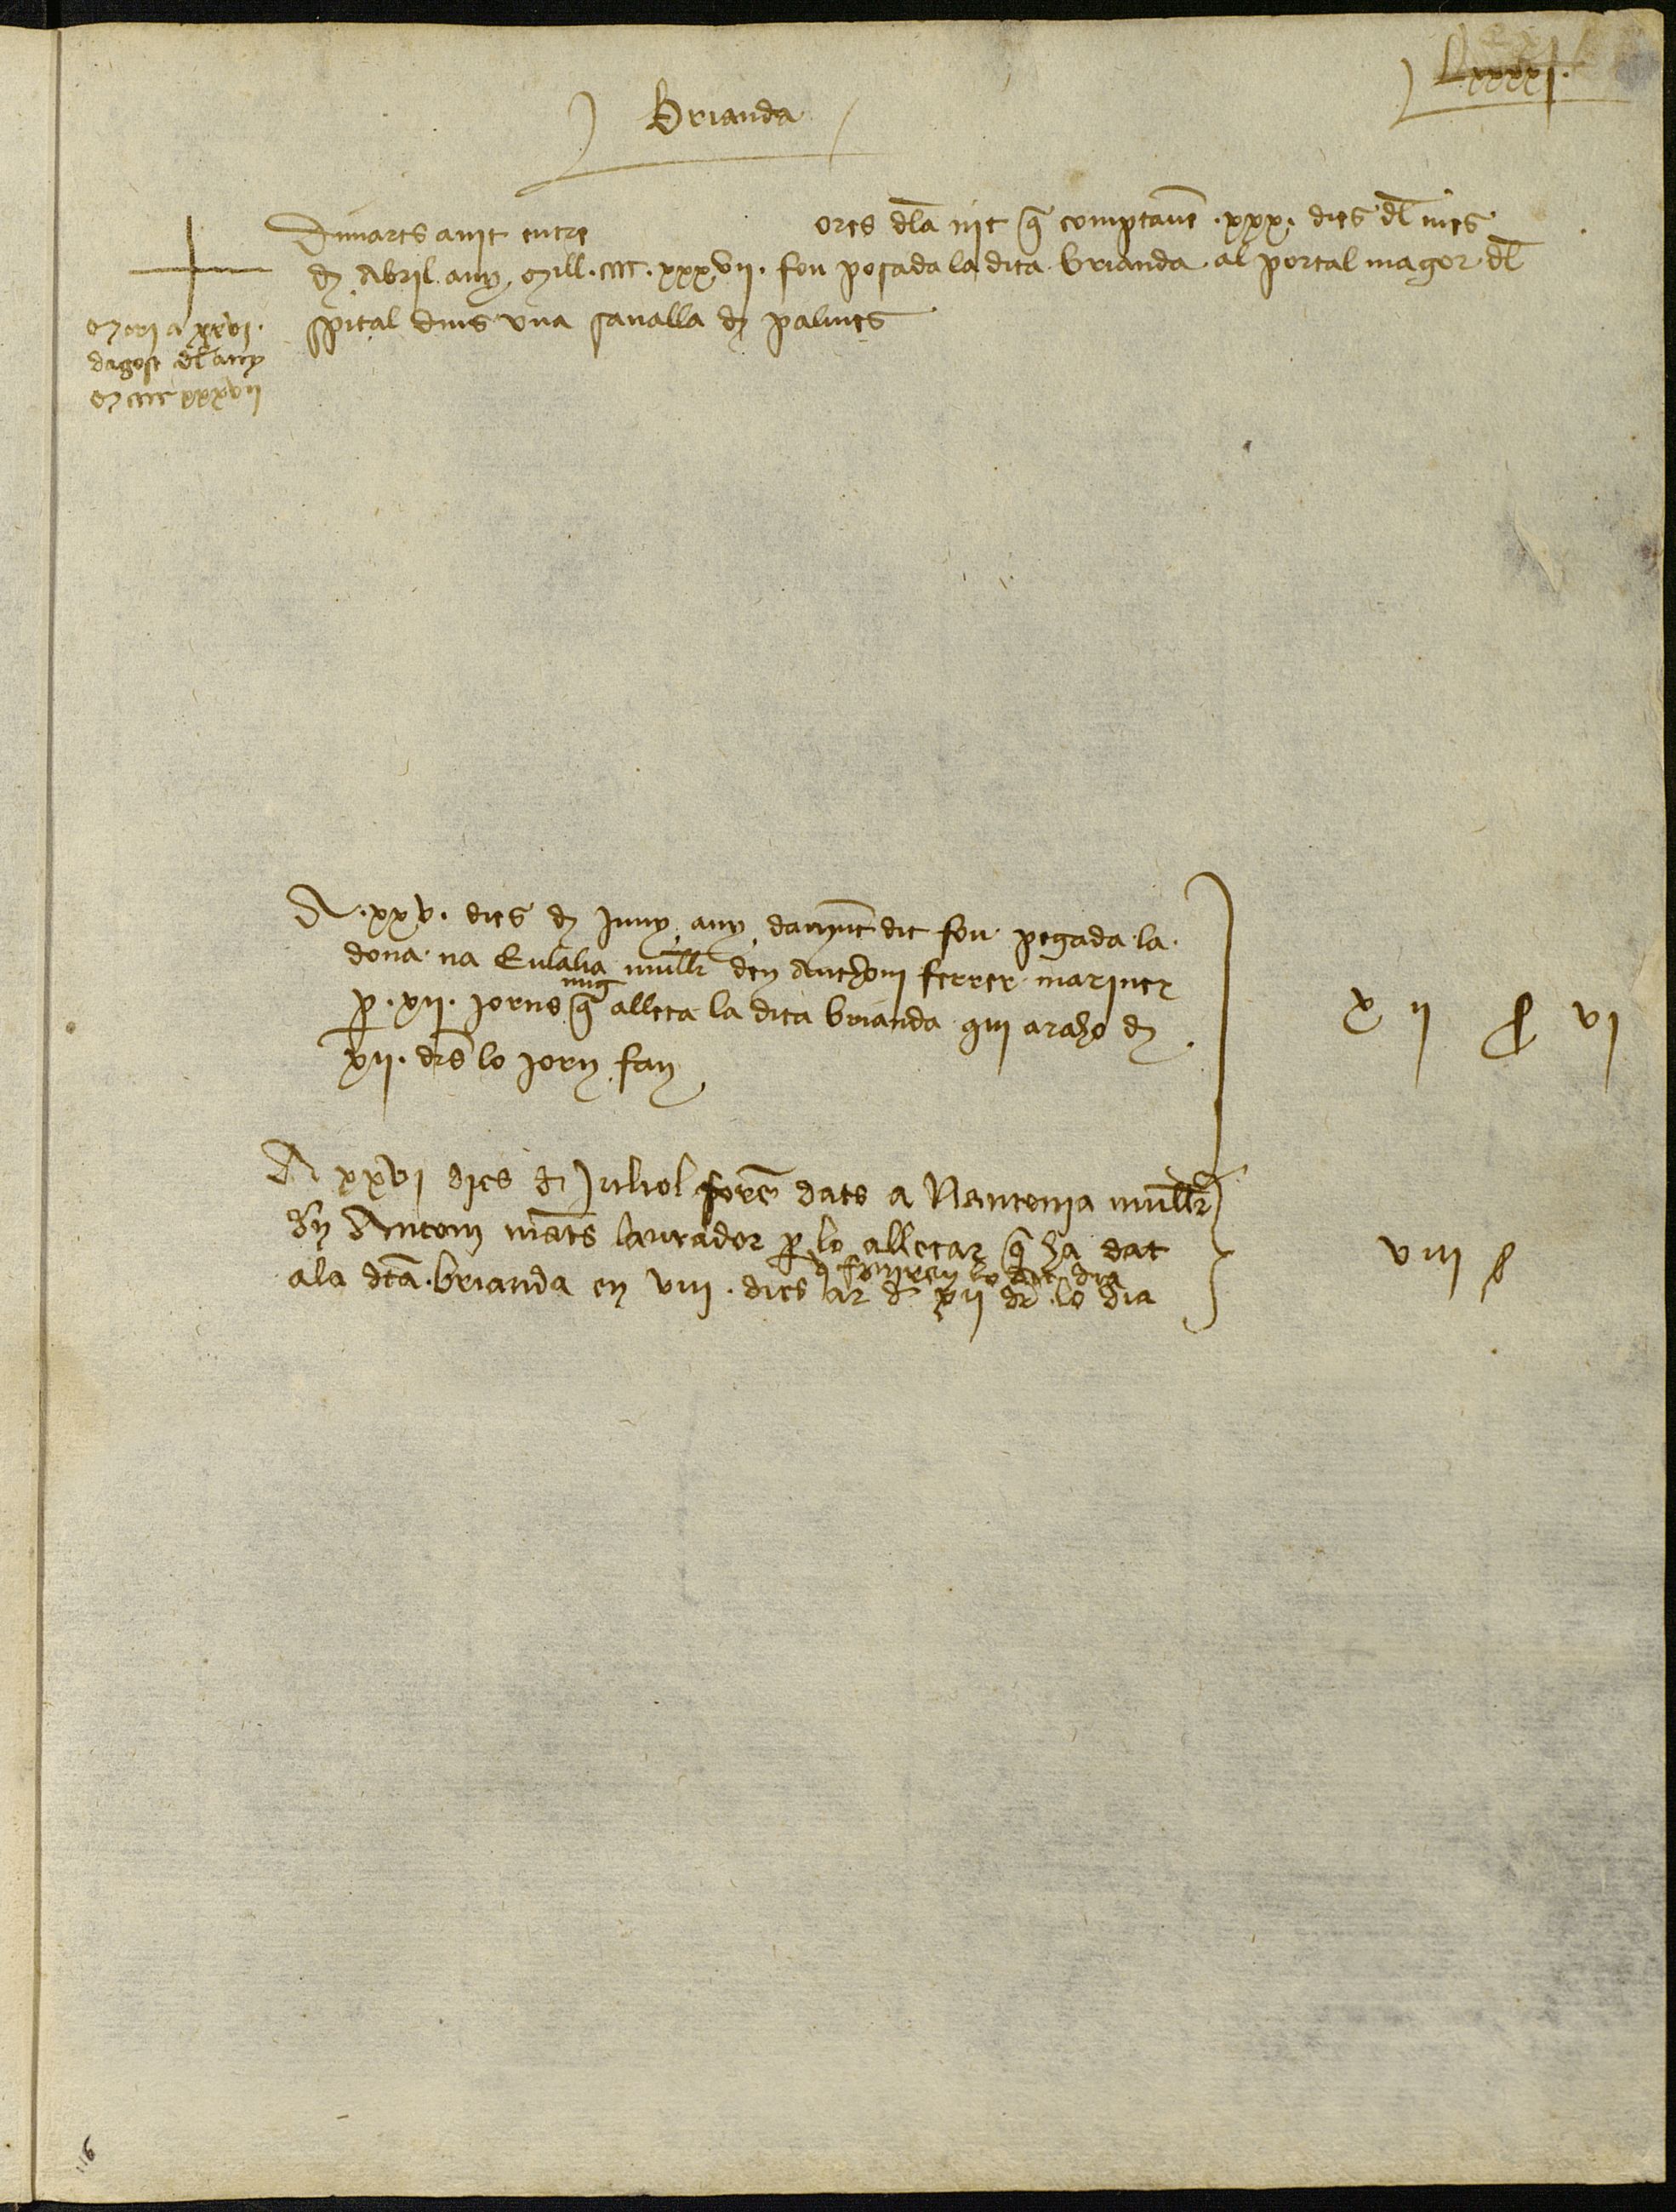 Lxxxxj.
Brianda
Dimarts a nit entre ores dla nit q comptauē .xxx. dies dl mes
d Abril any Mill .cccc. xxxvij. fon posada la dita brianda al portal magor dl
spital dins vna savalla d palmes
Mori a xxvi.
dagost dl any
M cccc xxxvij
A .xxv. dies d Juny any dauant dit fon pagada la
dona na Eulalia mullr den Anthoni ferrer mariner
mig
p .xij. jorns q alleta la dita brianda qui a raho d
xij. drs lo jorn fan
x ij s vj
A xxvj dies d Juliol foren dats a Nantonia mullr
dn Antoni laurador p lo alletar q ha dat
q finiren lo dit dia
a la dta brianda en viij. dies a r d xij dr lo dia
viij s
6